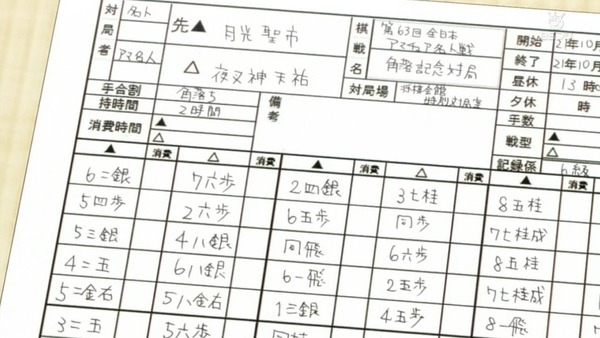 対局者
名人
先▲ 月光聖市
アマ名人
△ 夜叉神天祐
棋戦名
第63回全日本
アマチュア名人戦
角落記念対局
開始 21年10月
終了 21年10月
昼休 13時
夕休 時
手合割 角落ち
持時間 2時間
消費時間 ▲
△
備考
対局場 将棋会館
特別対局室
手数
戦型 ▲
△
記録係 6級
▲ 消費 △ 消費 ▲ 消費 △ 消費 ▲
6二銀 7六歩 2四銀 3七桂 8五桂
5四歩 2六歩 6五歩 同歩 7七桂成
5三銀 4八銀 同飛 6六歩 8五桂
4二玉 6八銀 6一飛 2五歩 7七桂成
5二金右 5八金右 1三銀 4五歩 8一飛
3二玉 5六歩 同桂